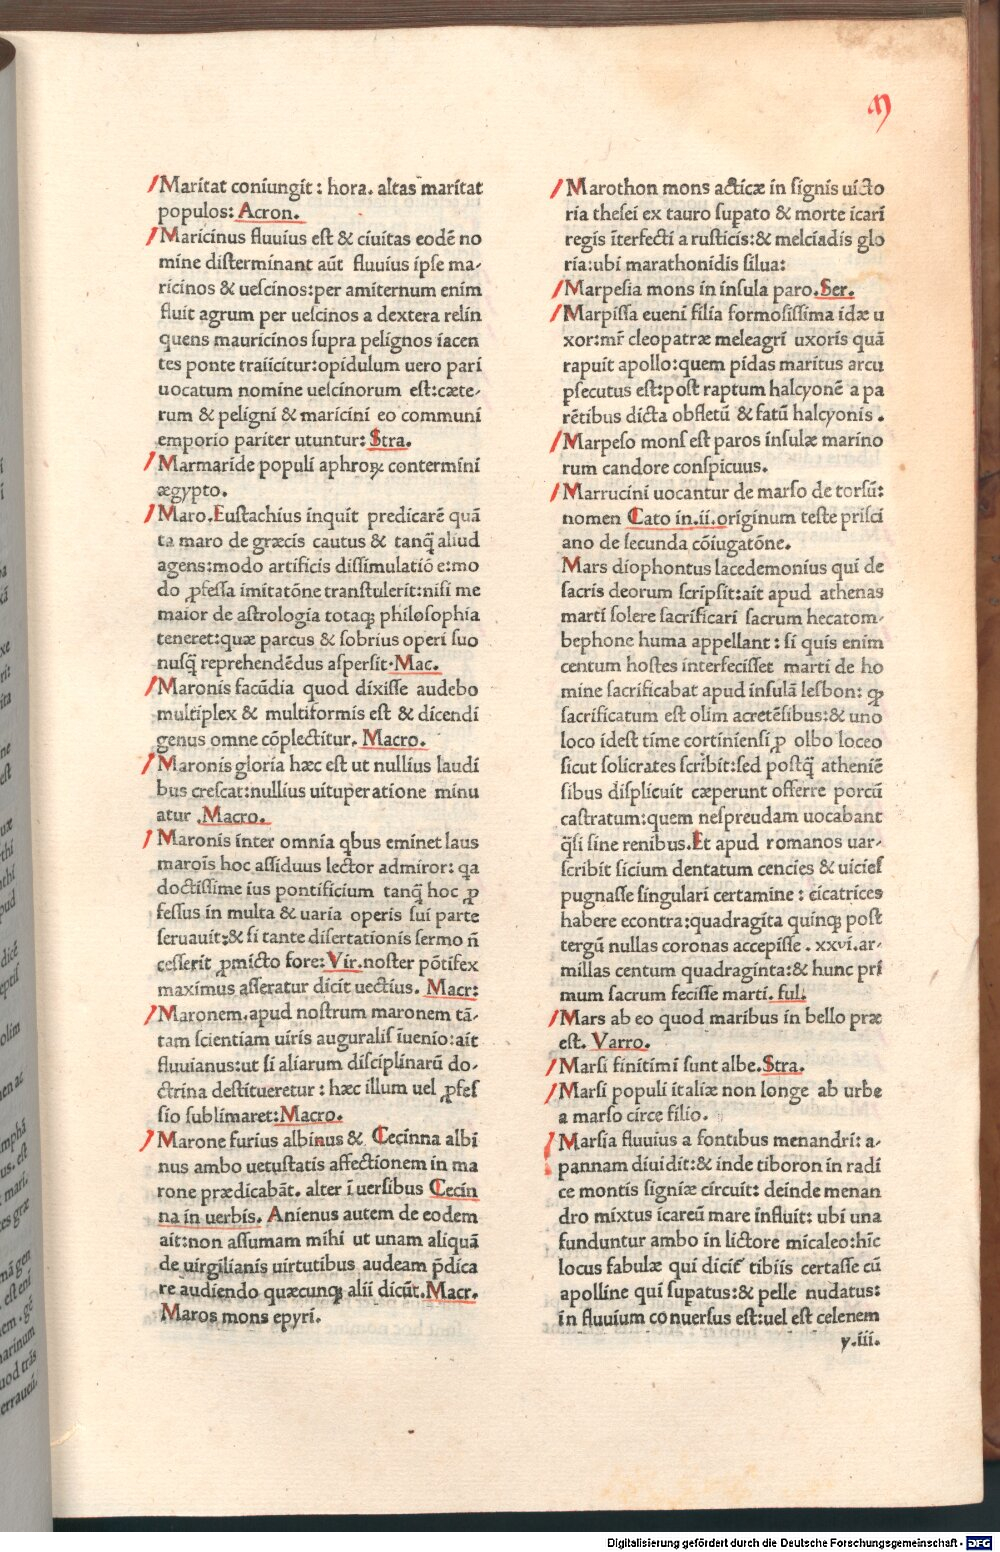 M
Maritat coniungit: hora. altas maritat
populos: Acron.
Maricinus fluuius est & ciuitas eodē no
mine disterminant aūt fluuius ipse ma-
ricinos & uescinos: per amiternum enim
fluit agrum per uescinos a dextera relin
quens mauricinos supra pelignos iacen
tes ponte traiicitur: opidulum uero pari
uocatum nomine uescinorum est: cæte-
rum & peligni & maricini eo communi
emporio pariter utuntur: Stra.
Marmaride populi aphroꝝ contermini
ægypto.
Maro. Eustachius inquit predicarē quā
ta maro de græcis cautus & tanq̄ aliud
agens: modo artificis dissimulatiō e: mo
do ꝓfessa imitatōne transtulerit: nisi me
maior de astrologia totaqȝ philosophia
teneret: quæ parcus & sobrius operi suo
nusq̄ reprehendēdus aspersit. Mac.
Maronis facūdia quod dixisse audebo
multiplex & multiformis est & dicendi
genus omne cōplectitur. Macro.
Maronis gloria hæc est ut nullius laudi
bus crescat: nullius uituperatione minu
atur. Macro.
Maronis inter omnia qbus eminet laus
marois hoc assiduus lector admiror: qa
doctissime ius pontificium tanq̄ hoc ꝓ
fessus in multa & uaria operis sui parte
seruauit: & si tante disertationis sermo n̄
cesserit ꝓmicto fore: Vir. noster pōtifex
maximus asseratur dicit uectius. Macr:
Maronem. apud nostrum maronem tā-
tam scientiam uiris auguralis iuenio: ait
fluuianus: ut si aliarum disciplinarū do-
ctrina destitueretur: hæc illum uel ꝓfes
sio sublimaret: Macro.
Marone furius albinus & Cecinna albi
nus ambo uetustatis affectionem in ma
rone prædicabāt. alter i uersibus Cecin
na in uerbis. Anienus autem de eodem
ait: non assumam mihi ut unam aliquā
de uirgilianis uirtutibus audeam p̄dica
re audiendo quæcunqȝ alii dicūt. Macr.
Maros mons epyri.
Marothon mons acticæ in signis uicto
ria thesei ex tauro supato & morte icari
regis īterfecti a rusticis: & melciadis glo
ria: ubi marathonidis silua:
Marpesia mons in insula paro. Ser.
Marpissa eueni filia formosissima idæ u
xor: mr̄ cleopatræ meleagri uxoris quā
rapuit apollo: quem pidas maritus arcu
psecutus est: post raptum halcyonē a pa
rētibus dicta obfletū & fatū halcyonis.
Marpeso mons est paros insulæ marino
rum candore conspicuus.
Marrucini uocantur de marso de torsū:
nomen Cato in. ii. originum teste prisci
ano de secunda cōiugatōne.
Mars diophontus lacedemonius qui de
sacris deorum scripsit: ait apud athenas
marti solere sacrificari sacrum hecatom-
bephone huma appellant: si quis enim
centum hostes interfecisset marti de ho
mine sacrificabat apud insulā lesbon: qȝ
sacrificatum est olim acretēsibus: & uno
loco idest time cortiniensi ꝓ olbo loceo
sicut solicrates scribit: sed postq̄ atheniē
sibus displicuit cæperunt offerre porcū
castratum: quem nespreudam uocabant
q̄si sine renibus. Et apud romanos uar-
scribit sicium dentatum cencies & uicies
pugnasse singulari certamine: cicatrices
habere econtra: quadragita quinqȝ post
tergū nullas coronas accepisse. xxvi. ar-
millas centum quadraginta: & hunc pri
mum sacrum fecisse marti. ful.
Mars ab eo quod maribus in bello præ
est. Varro.
Marsi finitimi sunt albe. Stra.
Marsi populi italiæ non longe ab urbe
a marso circe filio.
Marsia fluuius a fontibus menandri: a-
pannam diuidit: & inde tiboron in radi
ce montis signiæ circuit: deinde menan
dro mixtus icareū mare influit: ubi una
funduntur ambo in lictore micaleo: hic
locus fabulæ qui dicit̄ tibiis certasse cū
apolline qui supatus: & pelle nudatus:
in fluuium conuersus est: uel est celenem
y.iii.
Digitalisierung gefördert durch die Deutsche Forschungsgemeinschaft - DFG